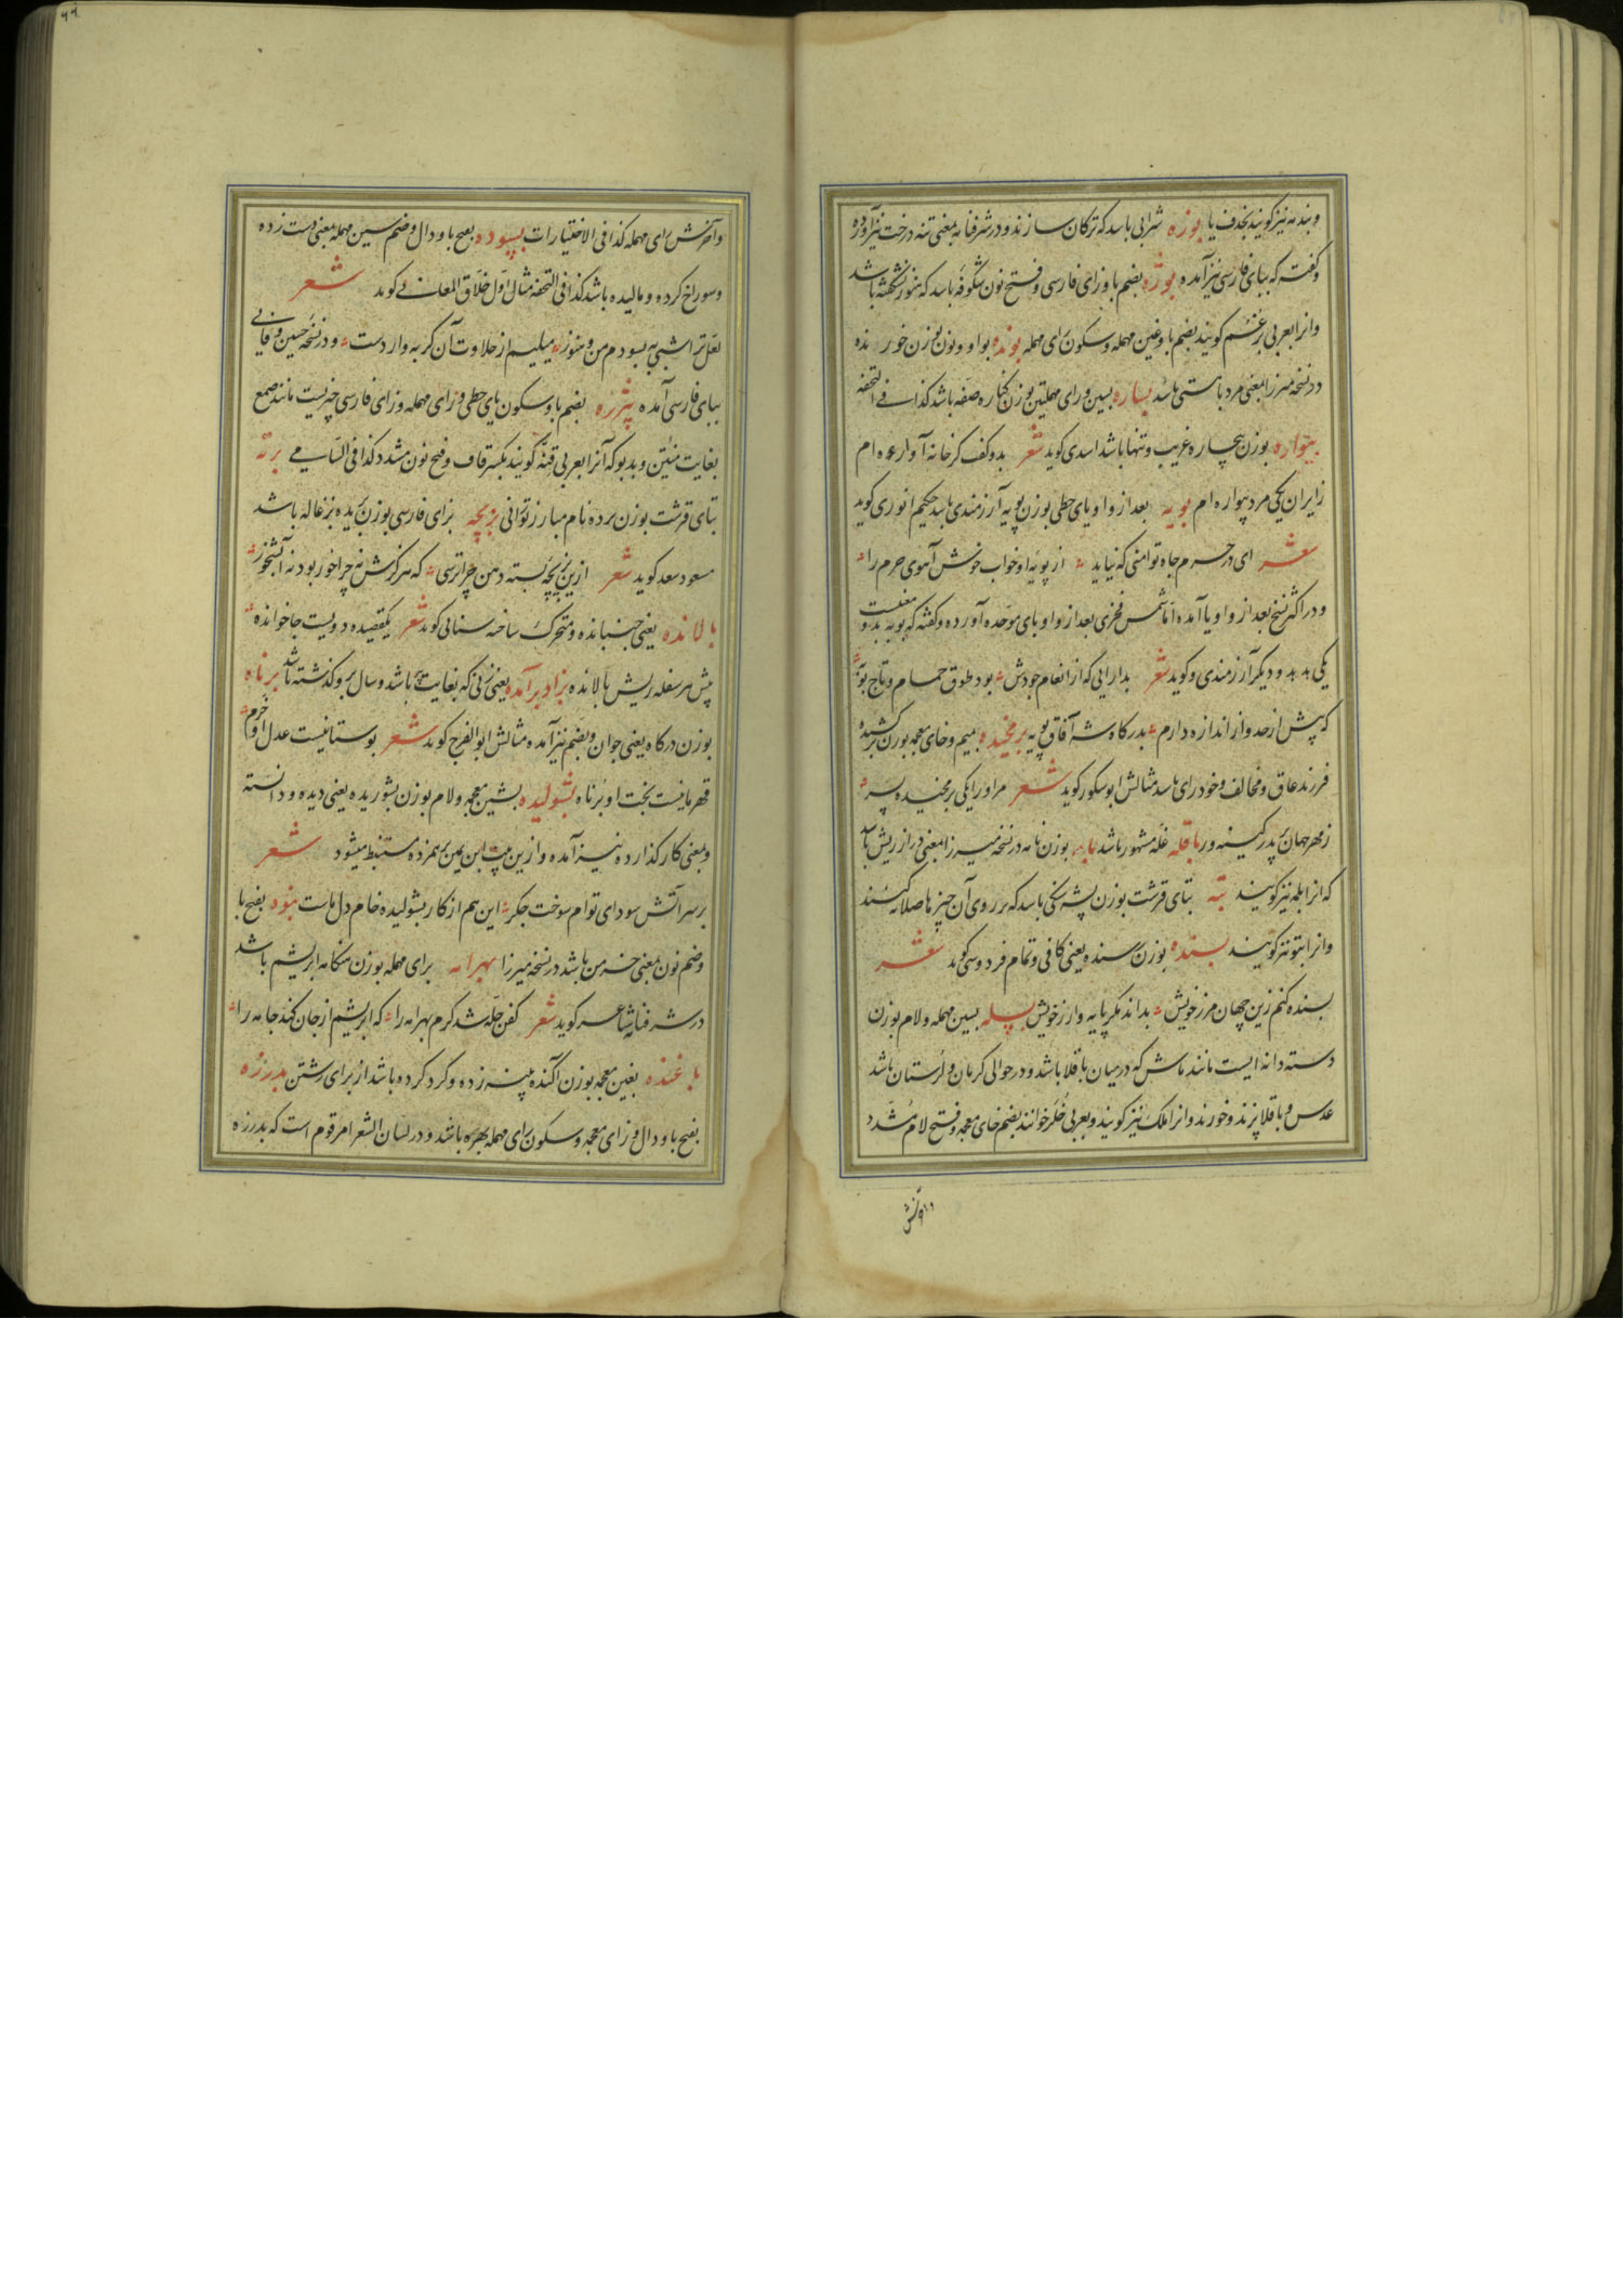 وبنده نیز گویند بحذف یا بوزه شرابی باشد که ترکان سازند و در شرفنامه بمعنی تنه درخت نیز آورده
و گفته که ببای فارسی نیز آمده بوژنه بضم با و زای فارسی و فتح نون شگوفه باشد که هنوز نشگفته باشد
وانرا بعربی برغم گویند بضم با و غین مهمله و سکون رای مهمله بونده بواو و نون بوزن خورنده
در نسخه میرزا بمعنی مرد باهستی باشد بساره بسین و رای مهملتین بوزن کناره صفه باشد کذا فی التحفه
بیواره بوزن بیچاره غریب و تنها باشد اسدی گوید شعر بدو گفت کز خانه آواره ام
ز ایران یکی مرد بیواره ام بویه بعد از واو یای حطی بوزن پویه آرزومندی باشد حکیم انوری گوید
شعر ای در حرم جاه تو امنی که نیاید از بویه او خواب خوش آهوی حرم را
و در اکثر نسخ بعد از واو یا آمده اما شمس فخری بعد از واو بای موحده آورده و گفته که بوبه بدو معنیست
یکی هدهد و دیگر آرزومندی و گوید شعر بدارایی که از انعام جودش بود طوق حمام و تاج بوبه
که پیش از حد و از اندازه دارم بدرگاه شه آفاق بوبه برمخیده بمیم و خای معجمه بوزن برکشیده
فرزند عاق و مخالف و خودرای باشد مثالش ابوشکور گوید شعر مر او را یکی برمخیده پسر
ز مهر جهان بر پدر کینه ور باقله غله مشهور باشد بامه بوزن نامه در نسخه میرزا بمعنی دراز ریش باشد
که انرا بلمه نیز گویند بته بتای قرشت بوزن پشه سنگی باشد که بر روی آن چیزها صلایه کنند
وانرا بتو نیز گویند بسنده بوزن رسنده یعنی کافی و تمام فردوسی گوید شعر
بسنده کنم زین جهان مرز خویش بداند مگر پایه وارز خویش بسله بسین مهمله و لام بوزن
دسته دانه ایست مانند ماش که در میان باقلا باشد و در حوالی کرمان و لرستان باشد
عدس و باقلا پزند و خورند وانرا ملک نیز گویند و بعربی خلر خوانند بضم خای معجمه و فتح لام مشدد
وآخرش
وآخرش رای مهمله کذا فی الاختیارات بپسوده بفتح با و دال و ضم سین مهمله بمعنی دست زده
و سوراخ کرده و مالیده باشد کذا فی التحفه مثال اول خلاق المعانی گوید شعر
لعل ترا شبی به بسودم من و هنوز میلیسم از حلاوت آن گربه وار دست و در نسخه حسین وفایی
ببای فارسی آمده بیرزه بضم با و سکون یای حطی و رای مهمله و زای فارسی چیزیست مانند صمغ
بغایت منتن و بدبو که آنرا بعربی قنه گویند بکسر قاف و فتح نون مشدد کذا فی السامی برته
بتای قرشت بوزن برده نام مبارز تورانی بزیچه بزای فارسی بوزن بریده بزغاله باشد
مسعود سعد گوید شعر ازین بزیچه بسته دهن چرا ترسی که هرگزش نه چراخور بود نه آبشخور
بالانده یعنی جنبانده و متحرک ساخته سنایی گوید شعر یکقصیده دویست جا خوانده
پیش هر سفله ریش بالانده بزاد برآمده یعنی زنی که بغایت باشد و سال برو گذشته باشد برناه
بوزن درگاه یعنی جوان و بضم نیز آمده مثالش ابوالفرج گوید شعر بوستانیست عدل او خرم
قهرمانیست بخت او برناه بشولیده بشین معجمه و لام بوزن بشوریده یعنی دیده و دانسته
و بمعنی کار گذارده نیز آمده و ازین بیت ابن یمن هر دو مستنبط میشود شعر
بر سر آتش سودای توام سوخت جگر این هم از کار بشولیده خام دل ماست بنو بفتح با
و ضم نون بمعنی خرمن باشد در نسخه میرزا بهرامه برای مهمله بوزن هنگامه ابریشم باشد
در شرفنامه شاعر گوید شعر کفن حله شد کرم بهرامه را که ابریشم از جان کند جامه را
باغنده بغین معجمه بوزن آکنده پنبه زده و گرد کرده باشد از برای رشتن بدرزه
بفتح با و دال و زای معجمه و سکون رای مهمله بهره باشد و در لسان الشعرا مرقوم است که بدرزه